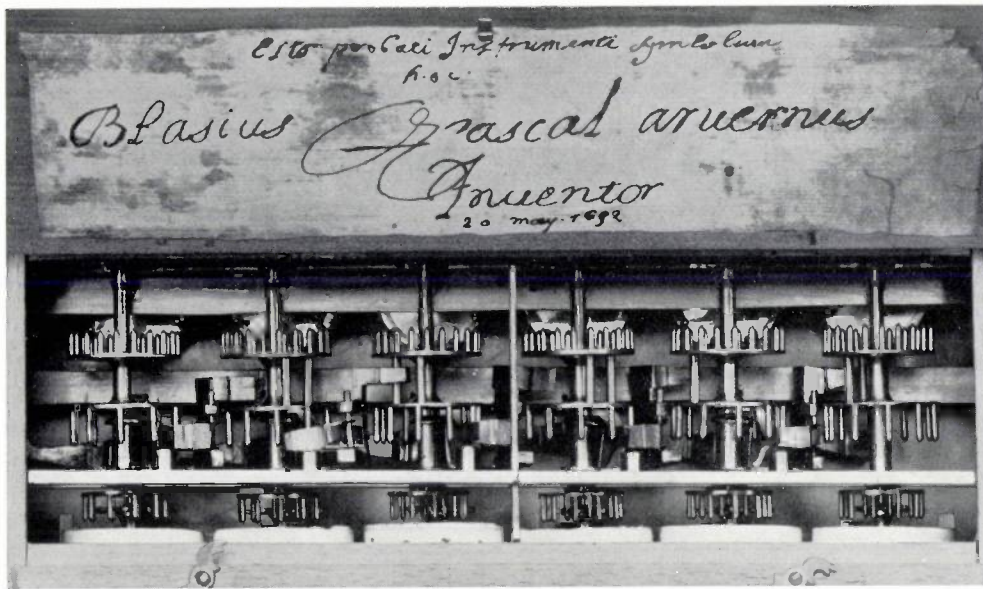 Esto probati Instrumenti symbolum
hoc
Blasius Pascal aruernus
Inuentor
20 may. 1652